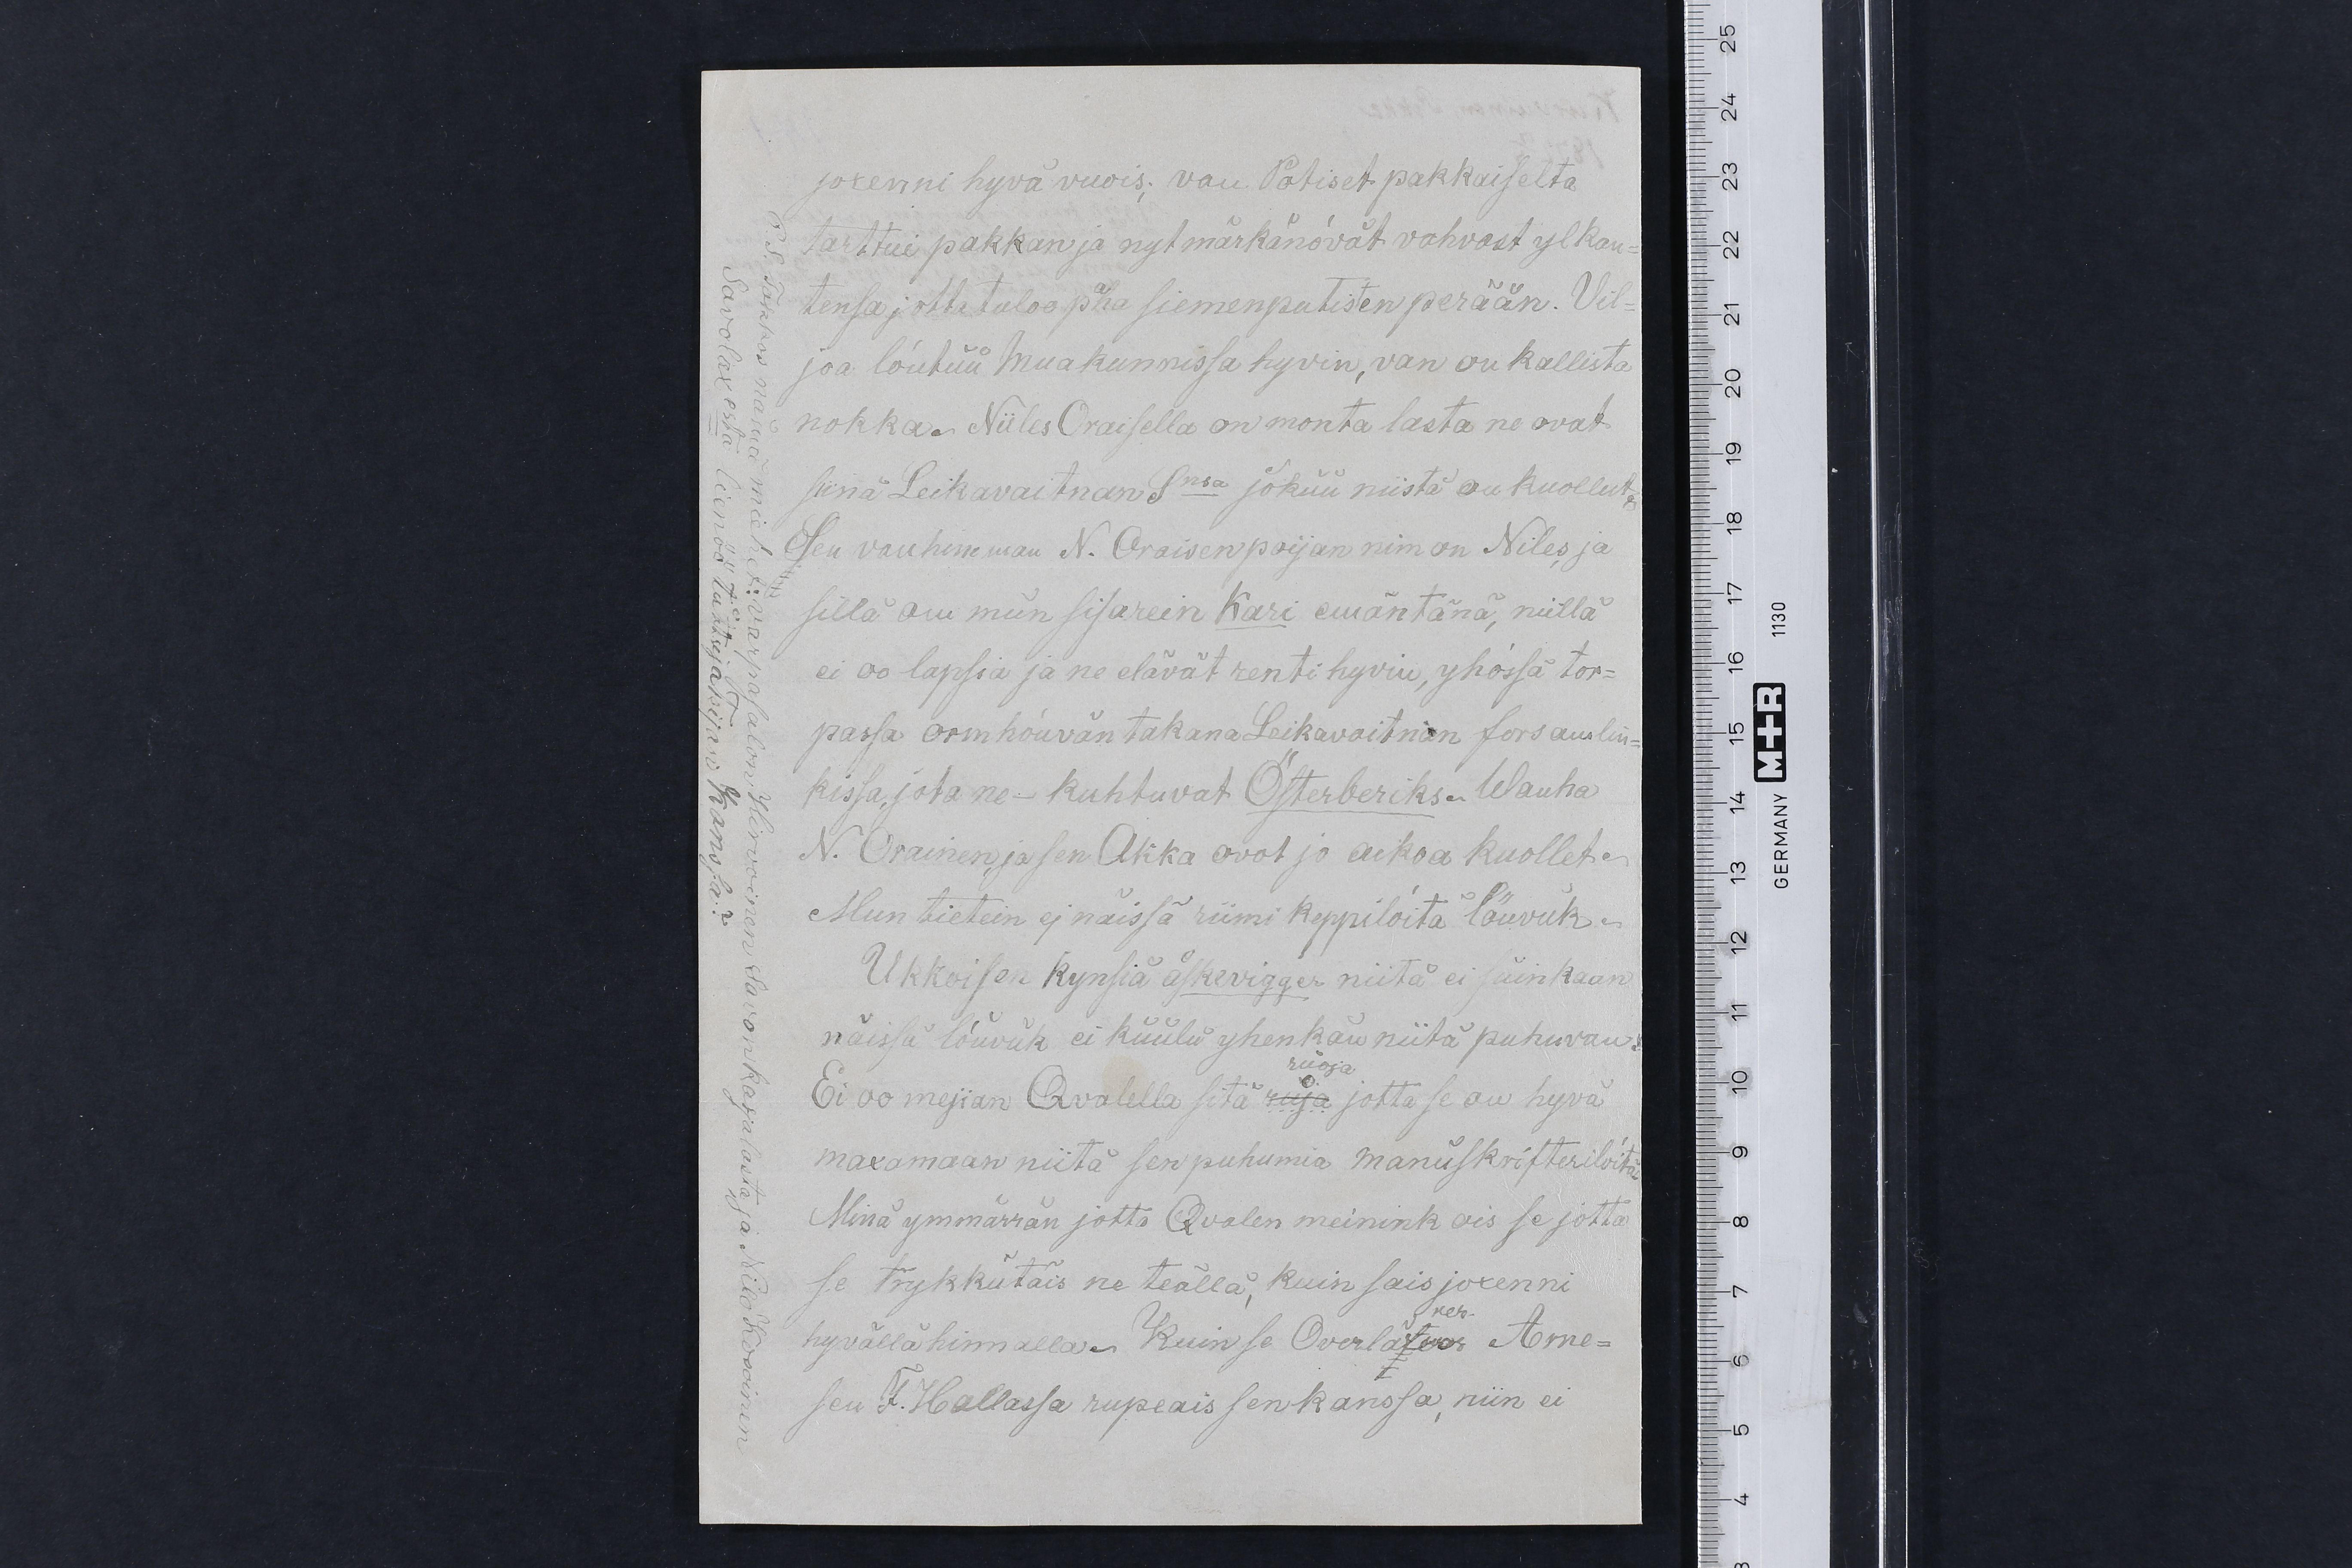 joxenni hyvä vuois; van Potiset pakkaiselta
tarttui pakkan ja nyt märkänóvät vahvast ylkau=
tensa jotta tuloo piha siemenputisten perään. Vil=
joa lóutüü Muakunnissa hyvin, van ou kallista
nokka. Niiles Oraisella on monta lasta ne ovat
siinä Leikavaitnan S nsa jokúú niistä ou kuollut.
Sen vanhimman N. Oraisen poijan nim on Niles, ja
sillä ou miin sisarein Kari emäntänä, niillä
ei oo lapsia ja ne elävät renti hyvin, yhóssä tor=
passa oomhóuvän takana Leikavaitnan forsamlin=
kissa, jota ne – kuhtuvat Österberiks. Wanha
N. Orainen, ja sen Akka ovot jo aikoa kuollet.
Mun tietein ej näissä riimi keppilóitä löuvük.
Ukkoisen kynsiä åskevigger niitä ei süinkaan
näissä lóuvúk ei kúúlú yhenkäu niitä puhuvan.
Ei oo mejian Qvalella sitä ruja ruoja jotta se ou hyvä
maxamaan niitä sen puhumia manúskrifterilóitä
Minä ymmärrän jotta Qvalen meinink ois se jotta
se Trykkútäis ne teällä, kuin sais joxenni
hyvällä hinnalla. Kuin se Overlä rer. Arne=
sen F. Hallassa rupeais sen kanssa, niin ei
P.S. Tokkos nämä miehet: Varpasalon Hirvoinen Savonkarjalasta ja Nilo Kvoinen
Savolaxesta lienöö tuxtuja sijan Kanssa?